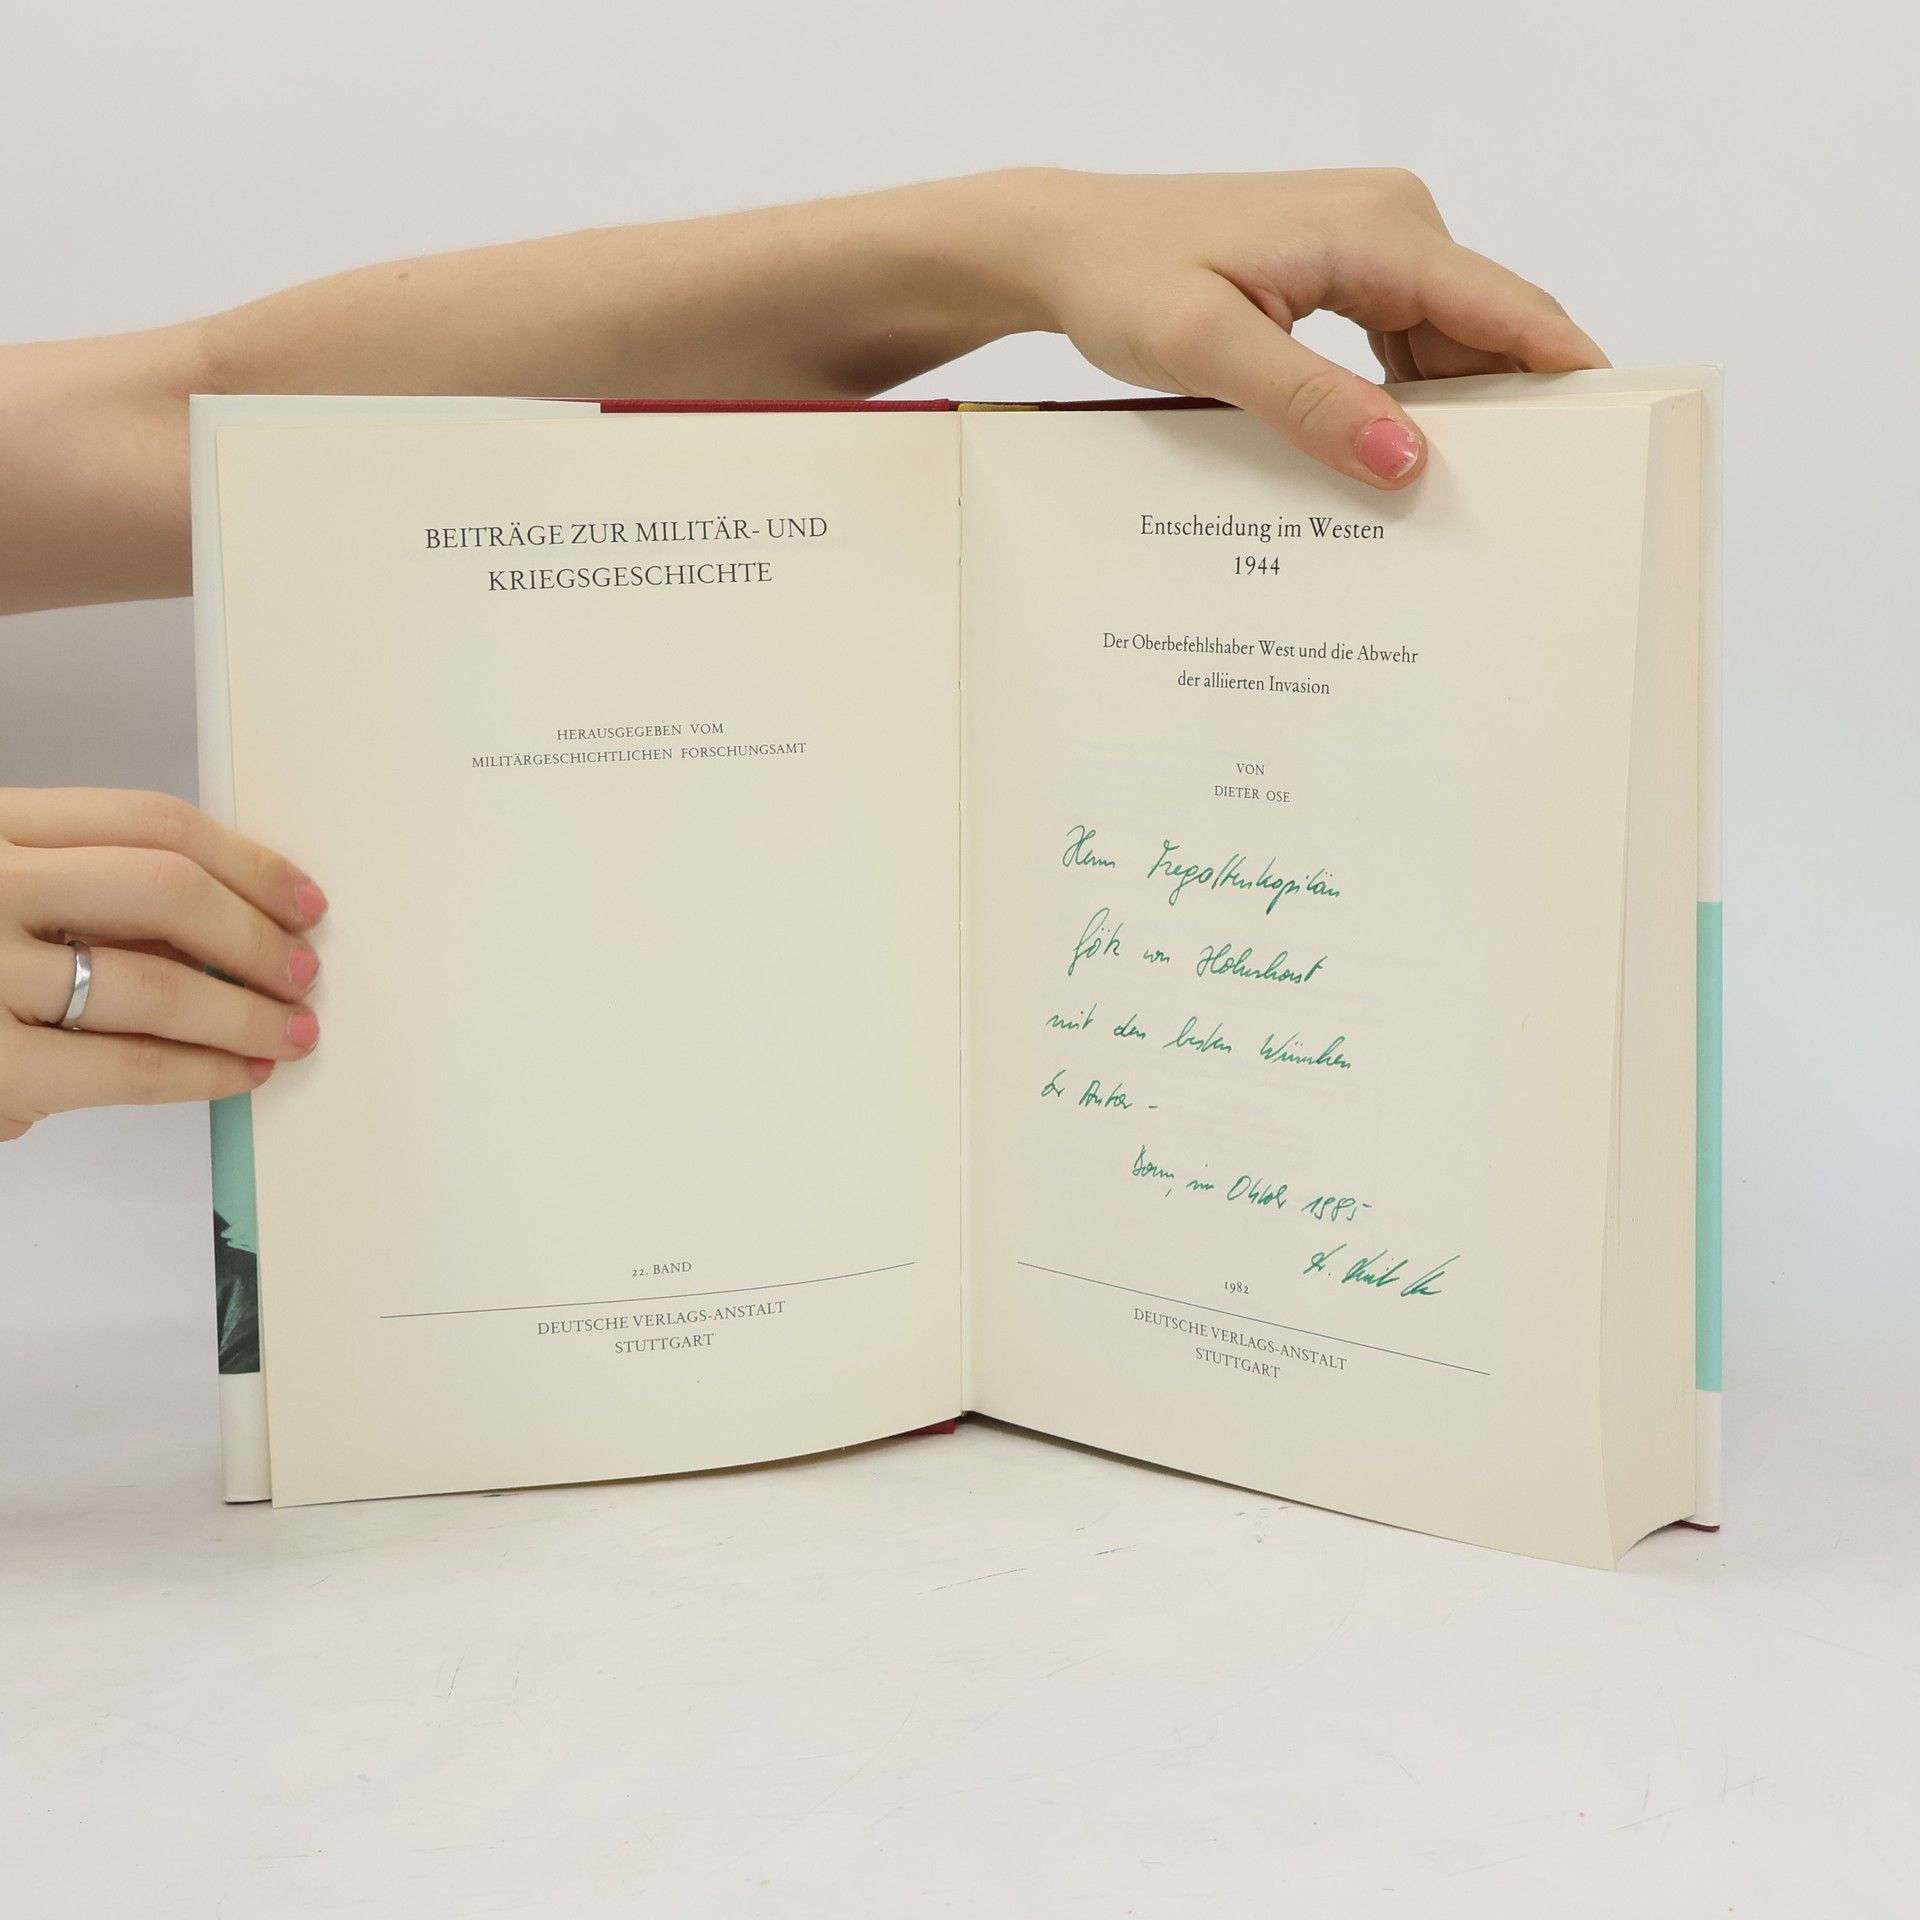 BEITRÄGE ZUR MILITÄR- UND
KRIEGSGESCHICHTE
HERAUSGEGEBEN VOM
MILITÄRGESCHICHTLICHEN FORSCHUNGSAMT
22. BAND
DEUTSCHE VERLAGS-ANSTALT
STUTTGART
Entscheidung im Westen
1944
Der Oberbefehlshaber West und die Abwehr
der alliierten Invasion
VON
DIETER OSE
Herrn Fregattenkapitän
Götz von Hohnhorst
mit den besten Wünschen
Der Autor -
Bonn, im Oktober 1985
Dr. Dieter Ose
1982
DEUTSCHE VERLAGS-ANSTALT
STUTTGART